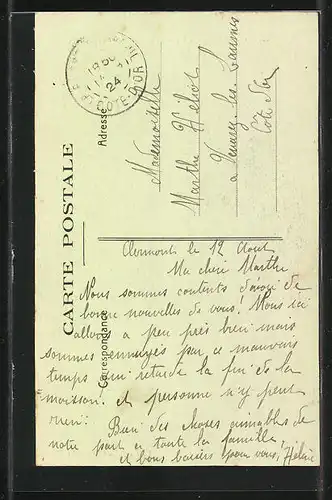 CARTE POSTALE
Correspondance
Adresse
CÔTE-D'OR
24
Mademoiselle
Marthe
a Venarey les Laumes
Côte d'or
Clermont le 12 Aout
Ma chère Marthe
Nous sommes contents d'avoir de
bonne nouvelles de vous! Nous ici
allons a peu près bien mais
sommes ennuyés par ce mauvais
temps qui retarde la fin de la
moisson! et personne n'y peut
rien! Bien des choses aimables de
notre part a toute la famille,
et bons baisers pour vous, Hélène